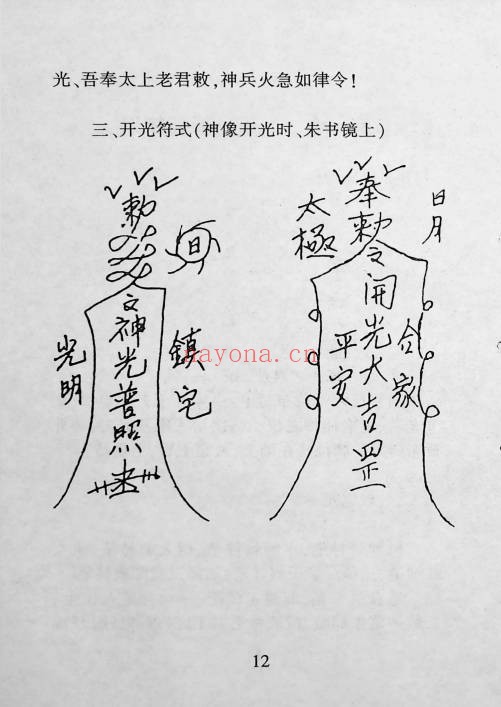 光、吾奉太上老君敕,神兵火急如律令!
三、开光符式(神像开光时、朱书镜上)
敕
神光普照
光明
鎮宅
奉敕令開光大吉罡
太極
日月
平安
合家
nayona.cn
12